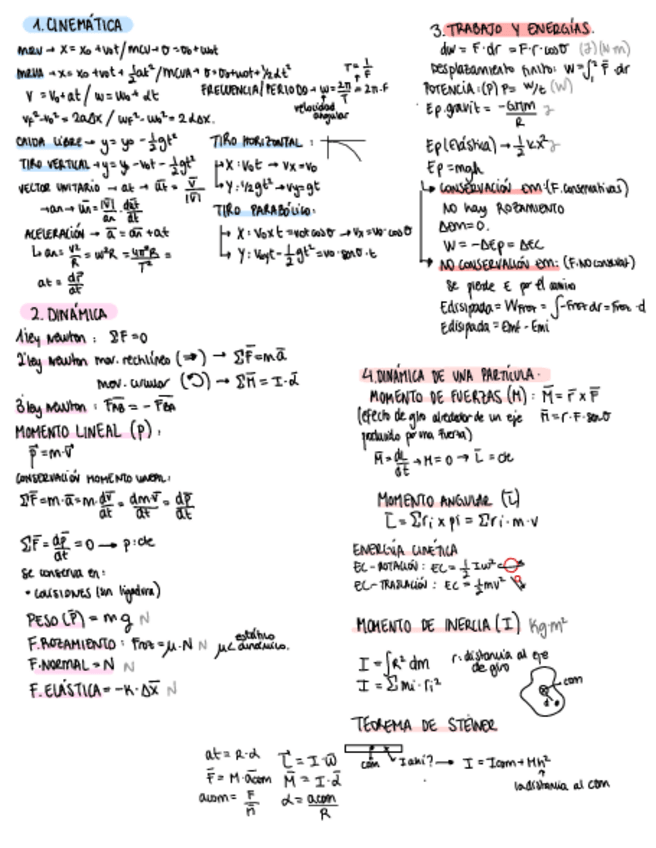 1. CINEMÁTICA
MRU → X = X₀ + V₀t / MCU → θ = θ₀ + ω₀t
MRUA → X = X₀ + V₀t + 1/2 at² / MCUA → θ = θ₀ + ω₀t + 1/2 αt²
T = 1/F
V = V₀ + at / ω = ω₀ + αt
FRECUENCIA/PERIODO → ω = 2π/T = 2π·F
velocidad angular
V_F² - V₀² = 2aΔX / ω_F² - ω₀² = 2αΔx.
CAIDA LIBRE → y = y₀ - 1/2 gt²
TIRO VERTICAL → y = y₀ - V₀t - 1/2 gt²
VECTOR UNITARIO → at → ūt = V̄/|V̄|
→ an → ūn = |V̄|/an · dūt/dt
ACELERACIÓN → ā = ān + at
↳ an = V²/R = ω²R = 4π²R/T² =
at = dP̄/dt
TIRO HORIZONTAL:
↳ X: V₀t → Vx = V₀
↳ Y: 1/2 gt² → Vy = gt
TIRO PARABÓLICO:
↳ X: V₀xt = V₀t cosθ → Vx = V₀·cosθ
↳ Y: V₀yt - 1/2 gt² = V₀·senθ·t
2. DINÁMICA
1ªley Newton: ΣF = 0
2ªley Newton mov. rectilíneo (⇒) → ΣF̄ = mā
mov. circular (↻) → ΣM̄ = I·ᾱ
3ªley Newton: F̄AB = - F̄BA
MOMENTO LINEAL (P):
P̄ = m·V̄
CONSERVACIÓN MOMENTO LINEAL:
ΣF̄ = m·ā = m·dV̄/dt = dmV̄/dt = dP̄/dt
ΣF̄ = dP̄/dt = 0 → p: cte
Se conserva en:
• COLISIONES (sin ligadura)
PESO (P̄) = mg N
F.ROZAMIENTO: Froz = μ·N N μ< estático dinámico.
F.NORMAL = N N
F.ELÁSTICA = -K·ΔX̄ N
3. TRABAJO Y ENERGÍAS.
dW = F·dr = F·r·cosθ (J) (N·m)
Desplazamiento finito: W = ∫₁² F̄·dr
POTENCIA: (P) P = W/t (W)
Ep.gravit = -GMm/R J
Ep(Elástica) → 1/2 Kx² J
Ep = mgh
↳ CONSERVACIÓN EM: (F.conservativas)
NO hay ROZAMIENTO
ΔEM = 0.
W = -ΔEp = ΔEC
↳ NO CONSERVACIÓN EM: (F.NO conservat)
Se pierde E por el camino
Edisipada = WFroz = ∫-Froz dr = Froz·d
Edisipada = Emf - Emi
4. DINÁMICA DE UNA PARTÍCULA.
MOMENTO DE FUERZAS (M): M̄ = r̄ × F̄
(efecto de giro alrededor de un eje M̄ = r·F·senθ
producido por una fuerza)
M̄ = dL/dt → M = 0 → L̄ = cte
MOMENTO ANGULAR (L̄)
L̄ = Σri × pi = Σri·m·v
ENERGÍA CINÉTICA
EC-ROTACIÓN: EC = 1/2 Iω²
EC-TRASLACIÓN: EC = 1/2 mv²
MOMENTO DE INERCIA (I) Kg·m²
I = ∫R² dm
r: distancia al eje de giro
I = Σmi·ri²
com
d
TEOREMA DE STEINER
com
I ahí? → I = Icom + Mh²
la distancia al com
at = R·α L̄ = I·ω̄
F̄ = M·ācom M̄ = I·ᾱ
acom = F/m α = acom/R